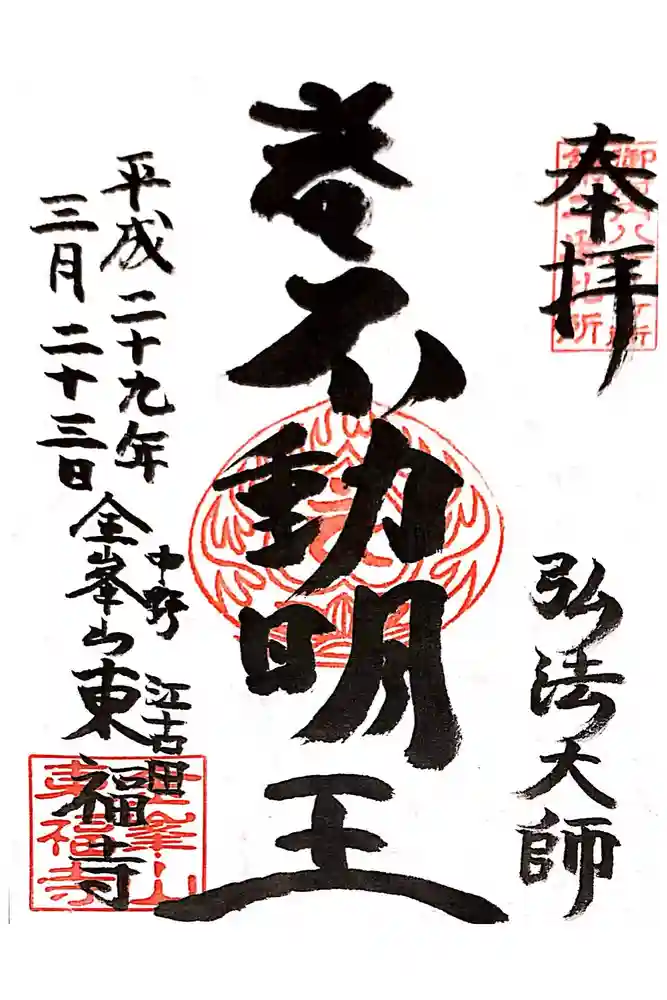 奉拝
弘法大師
不動明王
平成二十九年
三月二十三日
中野江古田
金峯山東福寺
金峯山
東福寺